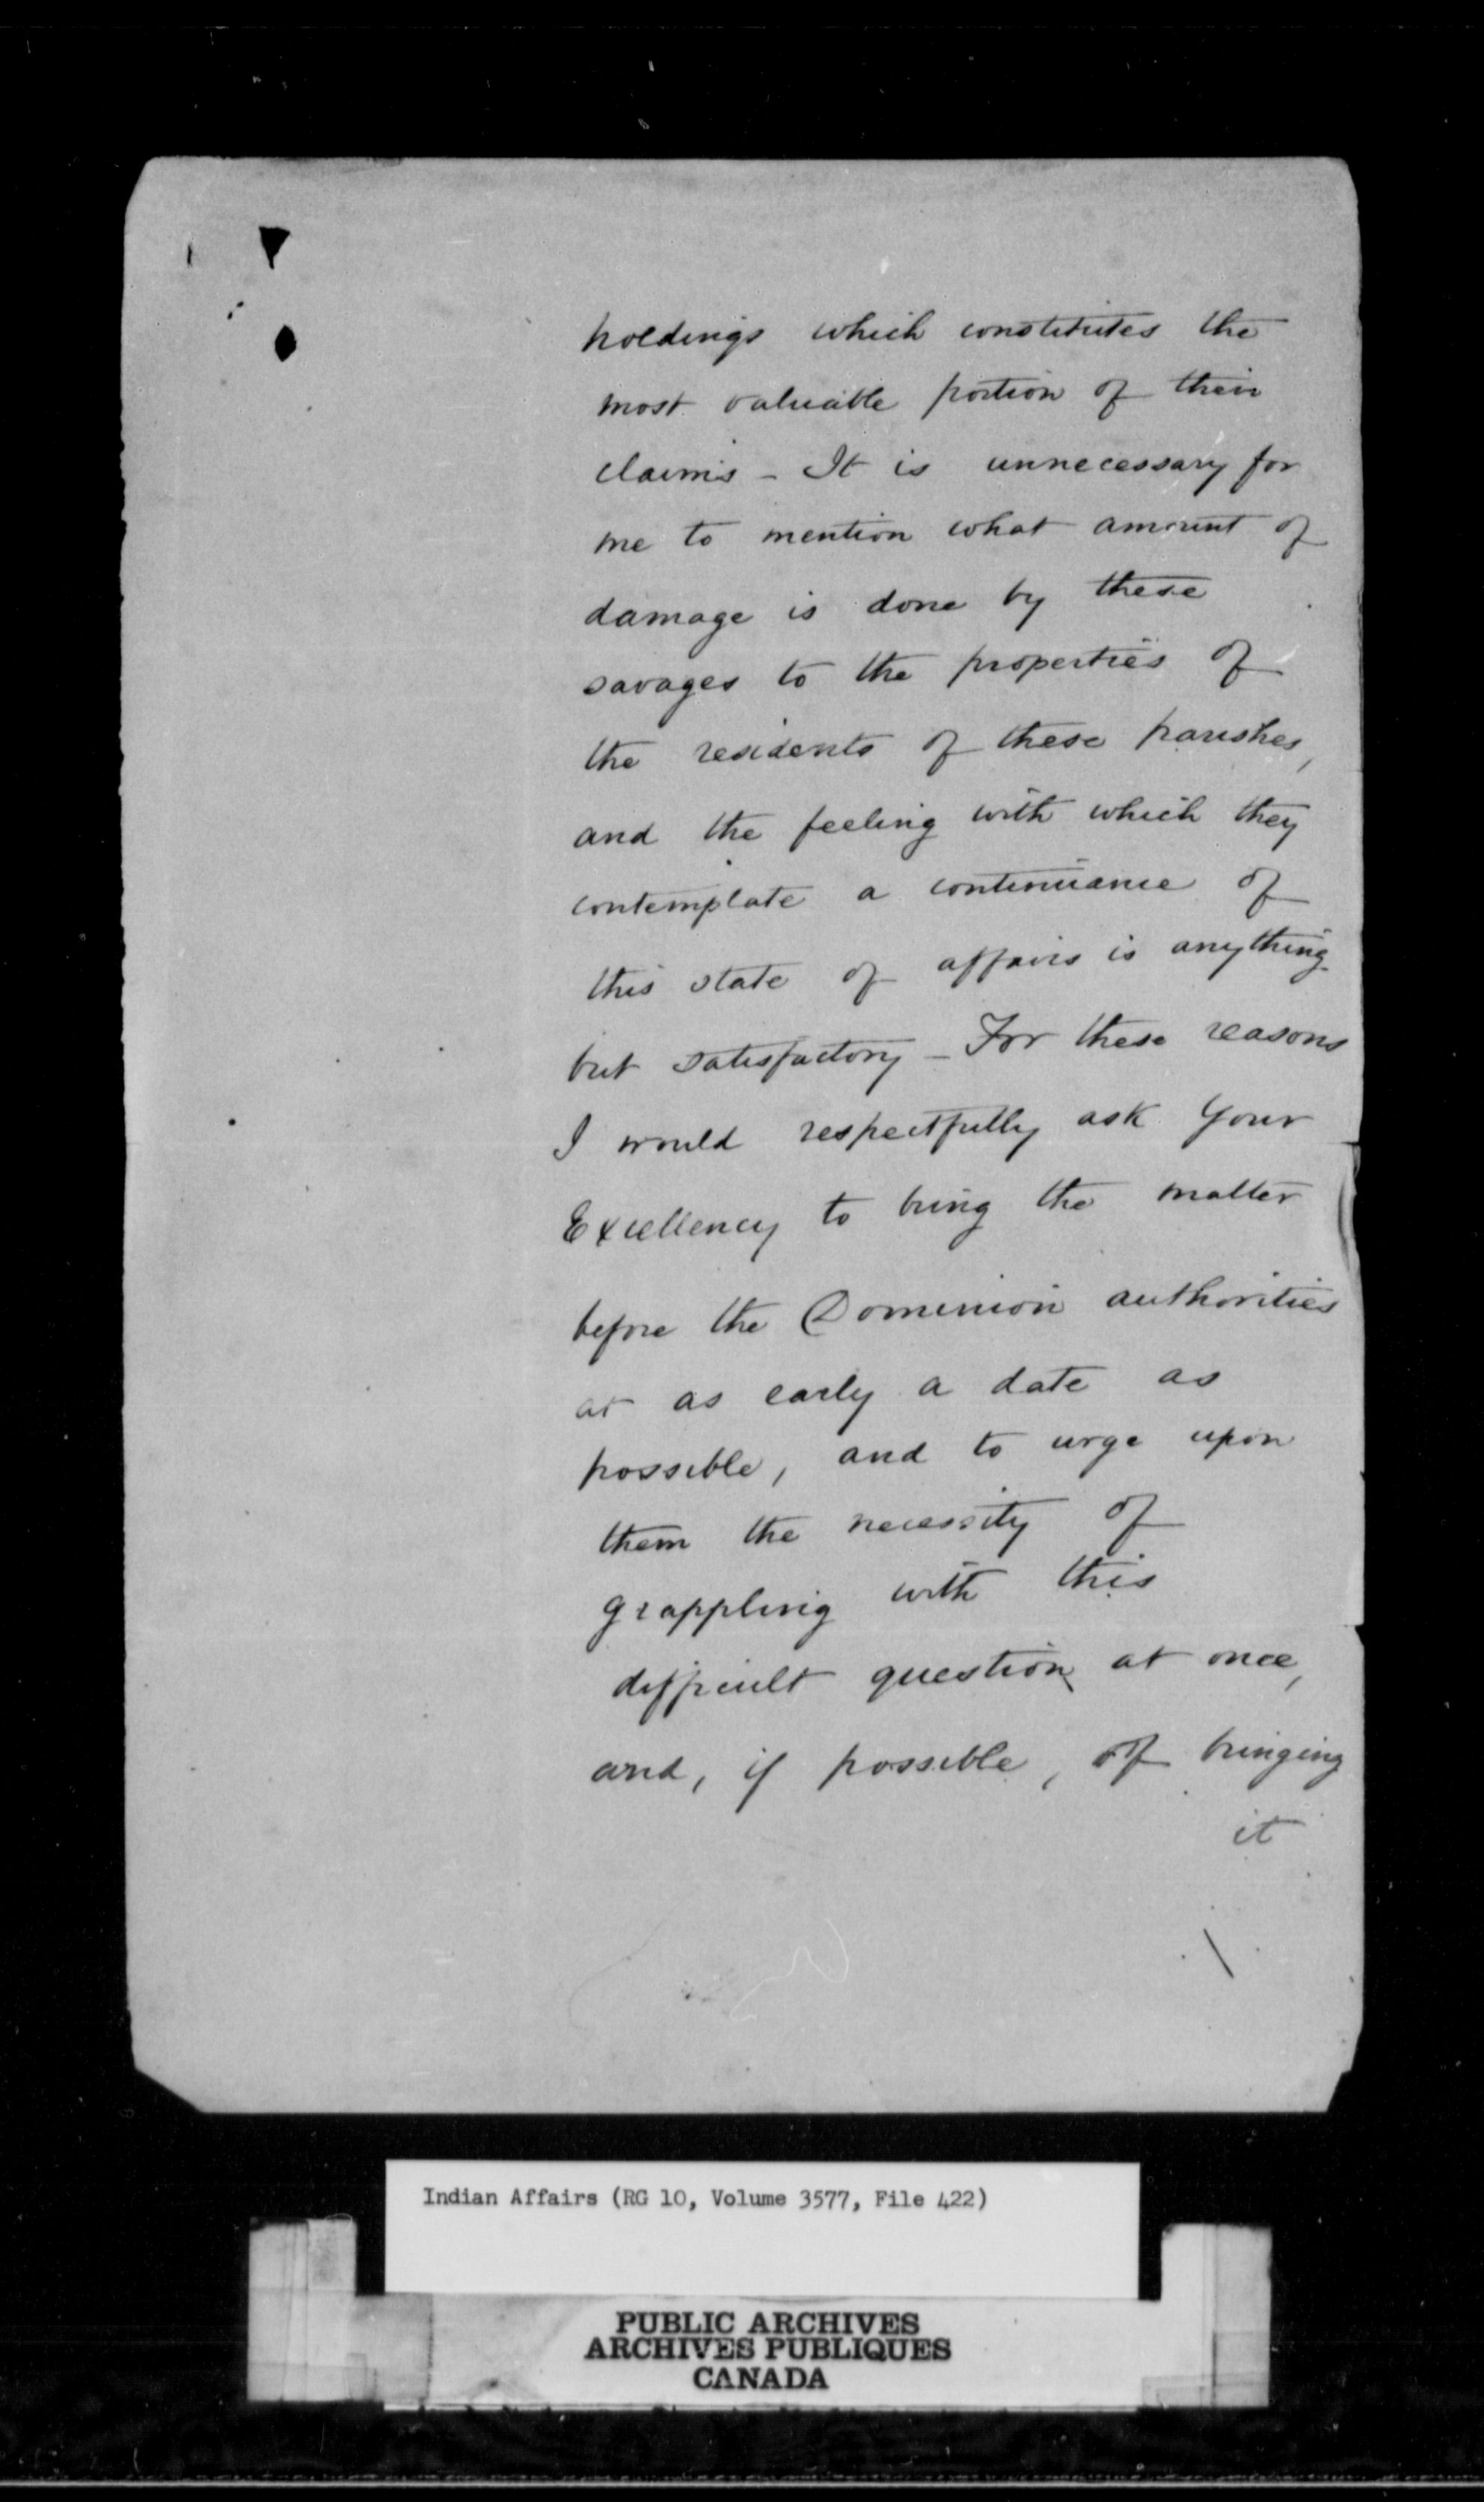 holdings which constitutes the
most valuable portion of their
claims - It is unnecessary for
me to mention what amount of
damage is done by these
savages to the properties of
the residents of these parishes,
and the feeling with which they
contemplate a continuance of
this state of affairs is anything
but satisfactory - For these reasons
I would respectfully ask Your
Excellency to bring the matter
before the Dominion authorities
at as early a date as
possible, and to urge upon
them the necessity of
grappling with this
difficult question at once,
and, if possible, of bringing
it
Indian Affairs (RG 10, Volume 3577, File 422)
PUBLIC ARCHIVES
ARCHIVES PUBLIQUES
CANADA